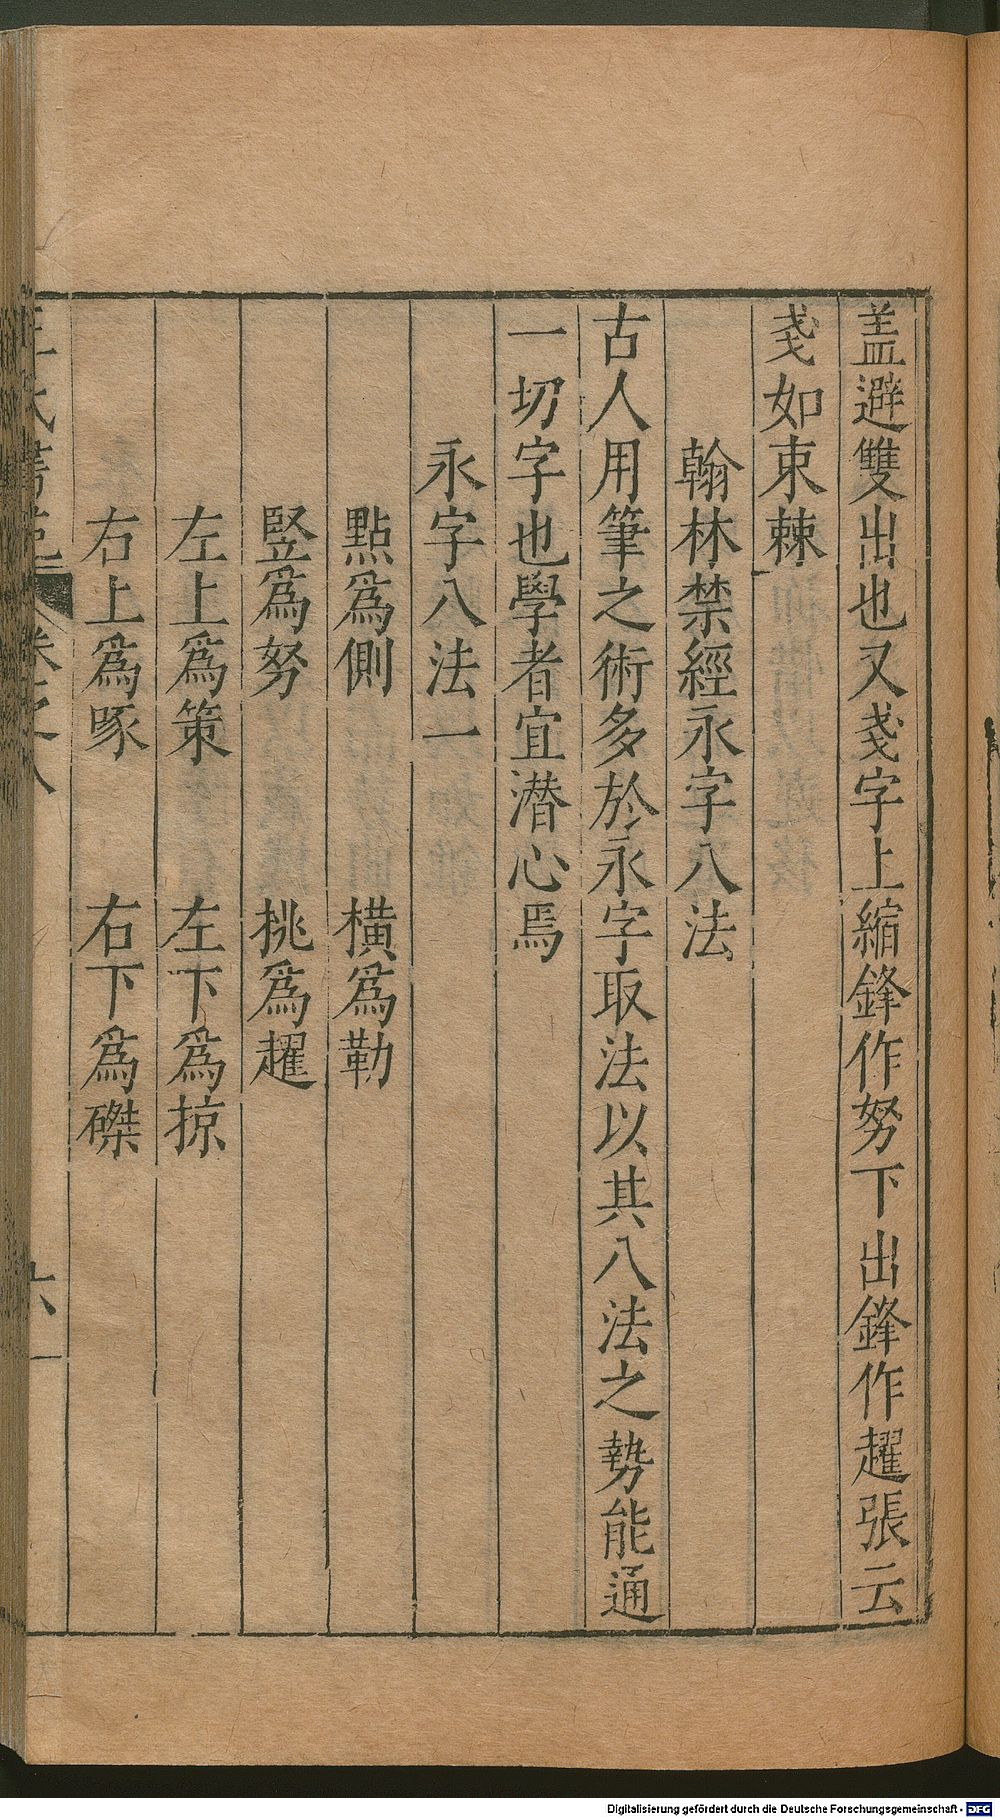 盖避雙出也又戔字上縮鋒作努下出鋒作趯張云
戔如束棘
翰林禁經永字八法
古人用筆之術多於永字取法以其八法之勢能通
一切字也學者宜潛心焉
永字八法一
點爲側　橫爲勒
竪爲努　挑爲趯
左上爲策　左下爲掠
右上爲啄　右下爲磔
卷之八
六
Digitalisierung gefördert durch die Deutsche Forschungsgemeinschaft - DFG